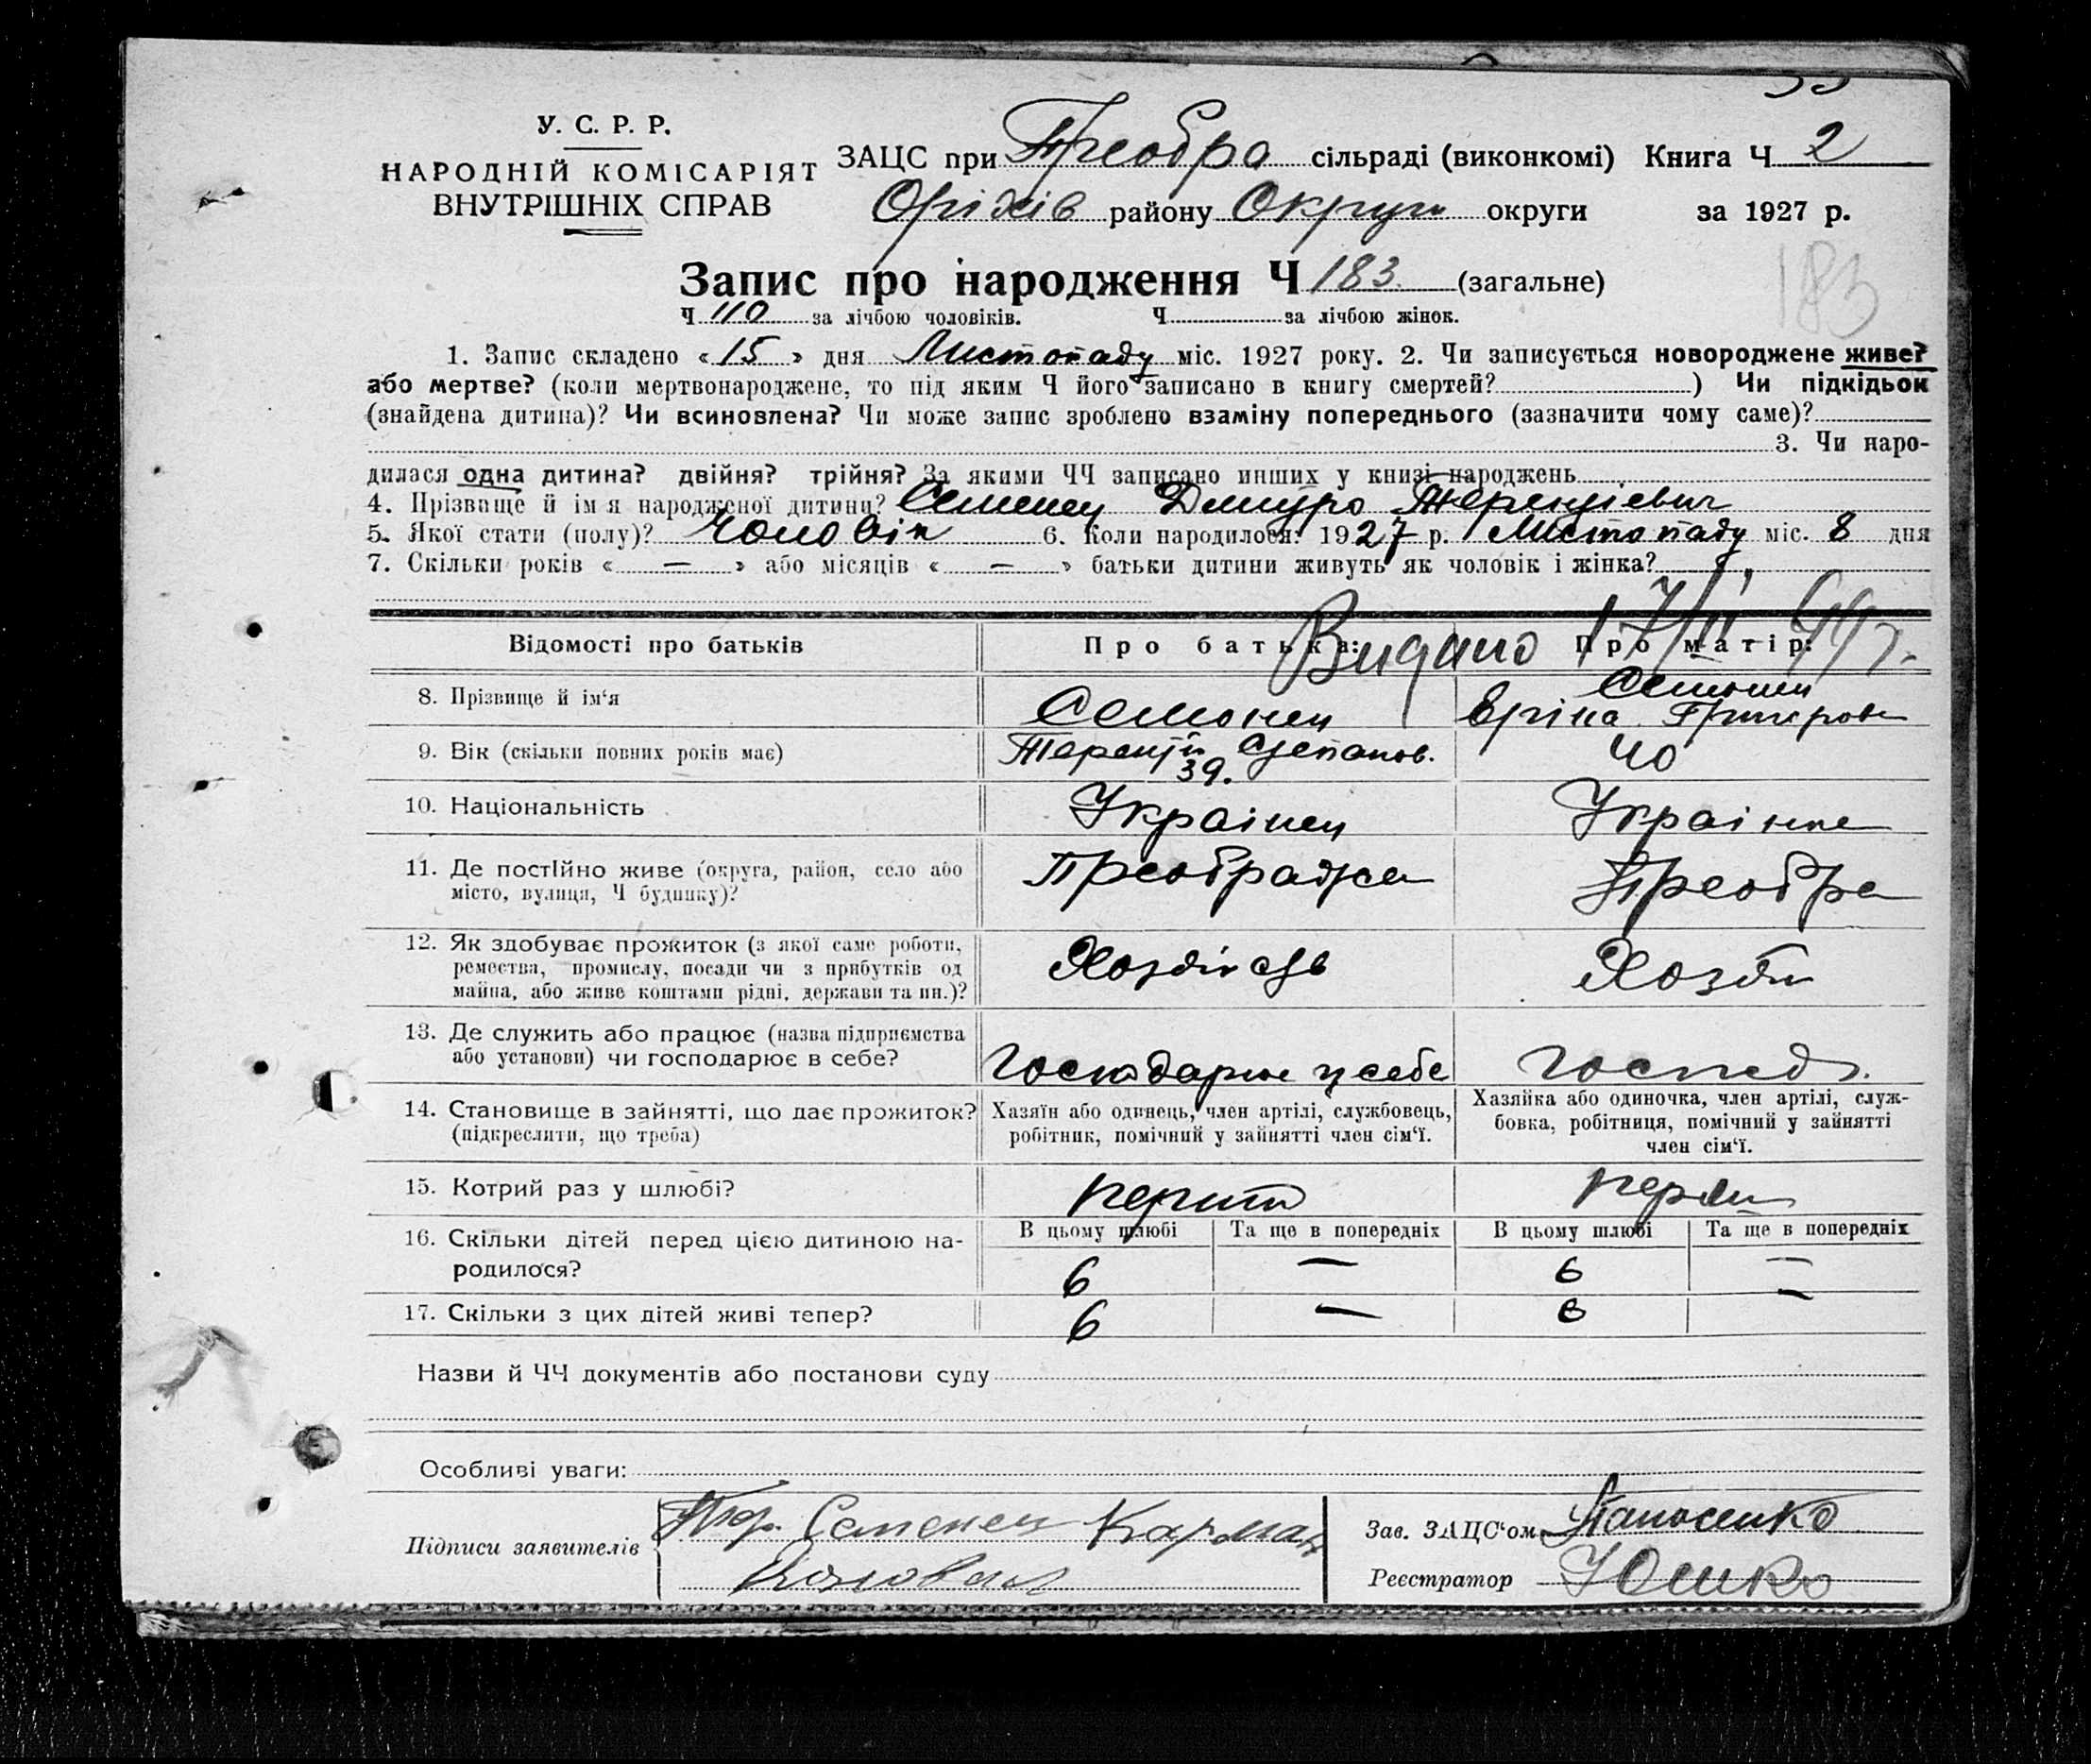 У. С. Р. Р.
НАРОДНІЙ КОМІСАРІЯТ
ВНУТРІШНІХ СПРАВ
ЗАЦС при Преобра сільраді (виконкомі) Книга Ч 2
Оріхів району Округи округи за 1927 р.
Запис про народження Ч 183 (загальне)
183
Ч 110 за лічбою чоловіків. Ч за лічбою жінок.
1. Запис складено « 15 » дня Листопаду міс. 1927 року. 2. Чи записується новороджене живе?
або мертве? (коли мертвонароджене, то під яким Ч його записано в книгу смертей? ) Чи підкідьок
(знайдена дитина)? Чи всиновлена? Чи може запис зроблено взаміну попереднього (зазначити чому саме)?
3. Чи наро-
дилася одна дитина? двійня? трійня? За якими ЧЧ записано инших у книзі народжень
4. Прізвище й ім я народженої дитини? Семенец Дмитро Терентіевич
5. Якої стати (полу)? Чоловік 6. Коли народилося: 1927 р. Листопаду міс. 8 дня
7. Скільки років « — » або місяців « — » батьки дитини живуть як чоловік і жінка?
Видано
Відомості про батьків Про батька: Про матір:
8. Прізвище й ім'я Семонец Семонец
9. Вік (скільки повних років має) Терентій Степанов. 39. 40
10. Національність Українец Україне
11. Де постійно живе (округа, район, село або
місто, вулиця, Ч будинку)? Преображе Преобра
12. Як здобуває прожиток (з якої саме роботи,
ремества, промислу, посади чи з прибутків од
майна, або живе коштами рідні, держави та ин.)?
13. Де служить або працює (назва підприємства
або установи) чи господарює в себе? у себе
14. Становище в зайнятті, що дає прожиток?
(підкреслити, що треба)
Хазяїн або одинець, член артілі, службовець,
робітник, помічний у зайнятті член сім'ї.
Хазяйка або одиночка, член артілі, служ-
бовка, робітниця, помічний у зайнятті
член сім'ї.
15. Котрий раз у шлюбі?
В цьому шлюбі Та ще в попередніх В цьому шлюбі Та ще в попередніх
16. Скільки дітей перед цією дитиною на-
родилося? 6 — 6 —
17. Скільки з цих дітей живі тепер? 6 — 6 —
Назви й ЧЧ документів або постанови суду
Особливі уваги:
Підписи заявителів Тер. Семенец
Зав. ЗАЦС'ом
Реєстратор Юшко